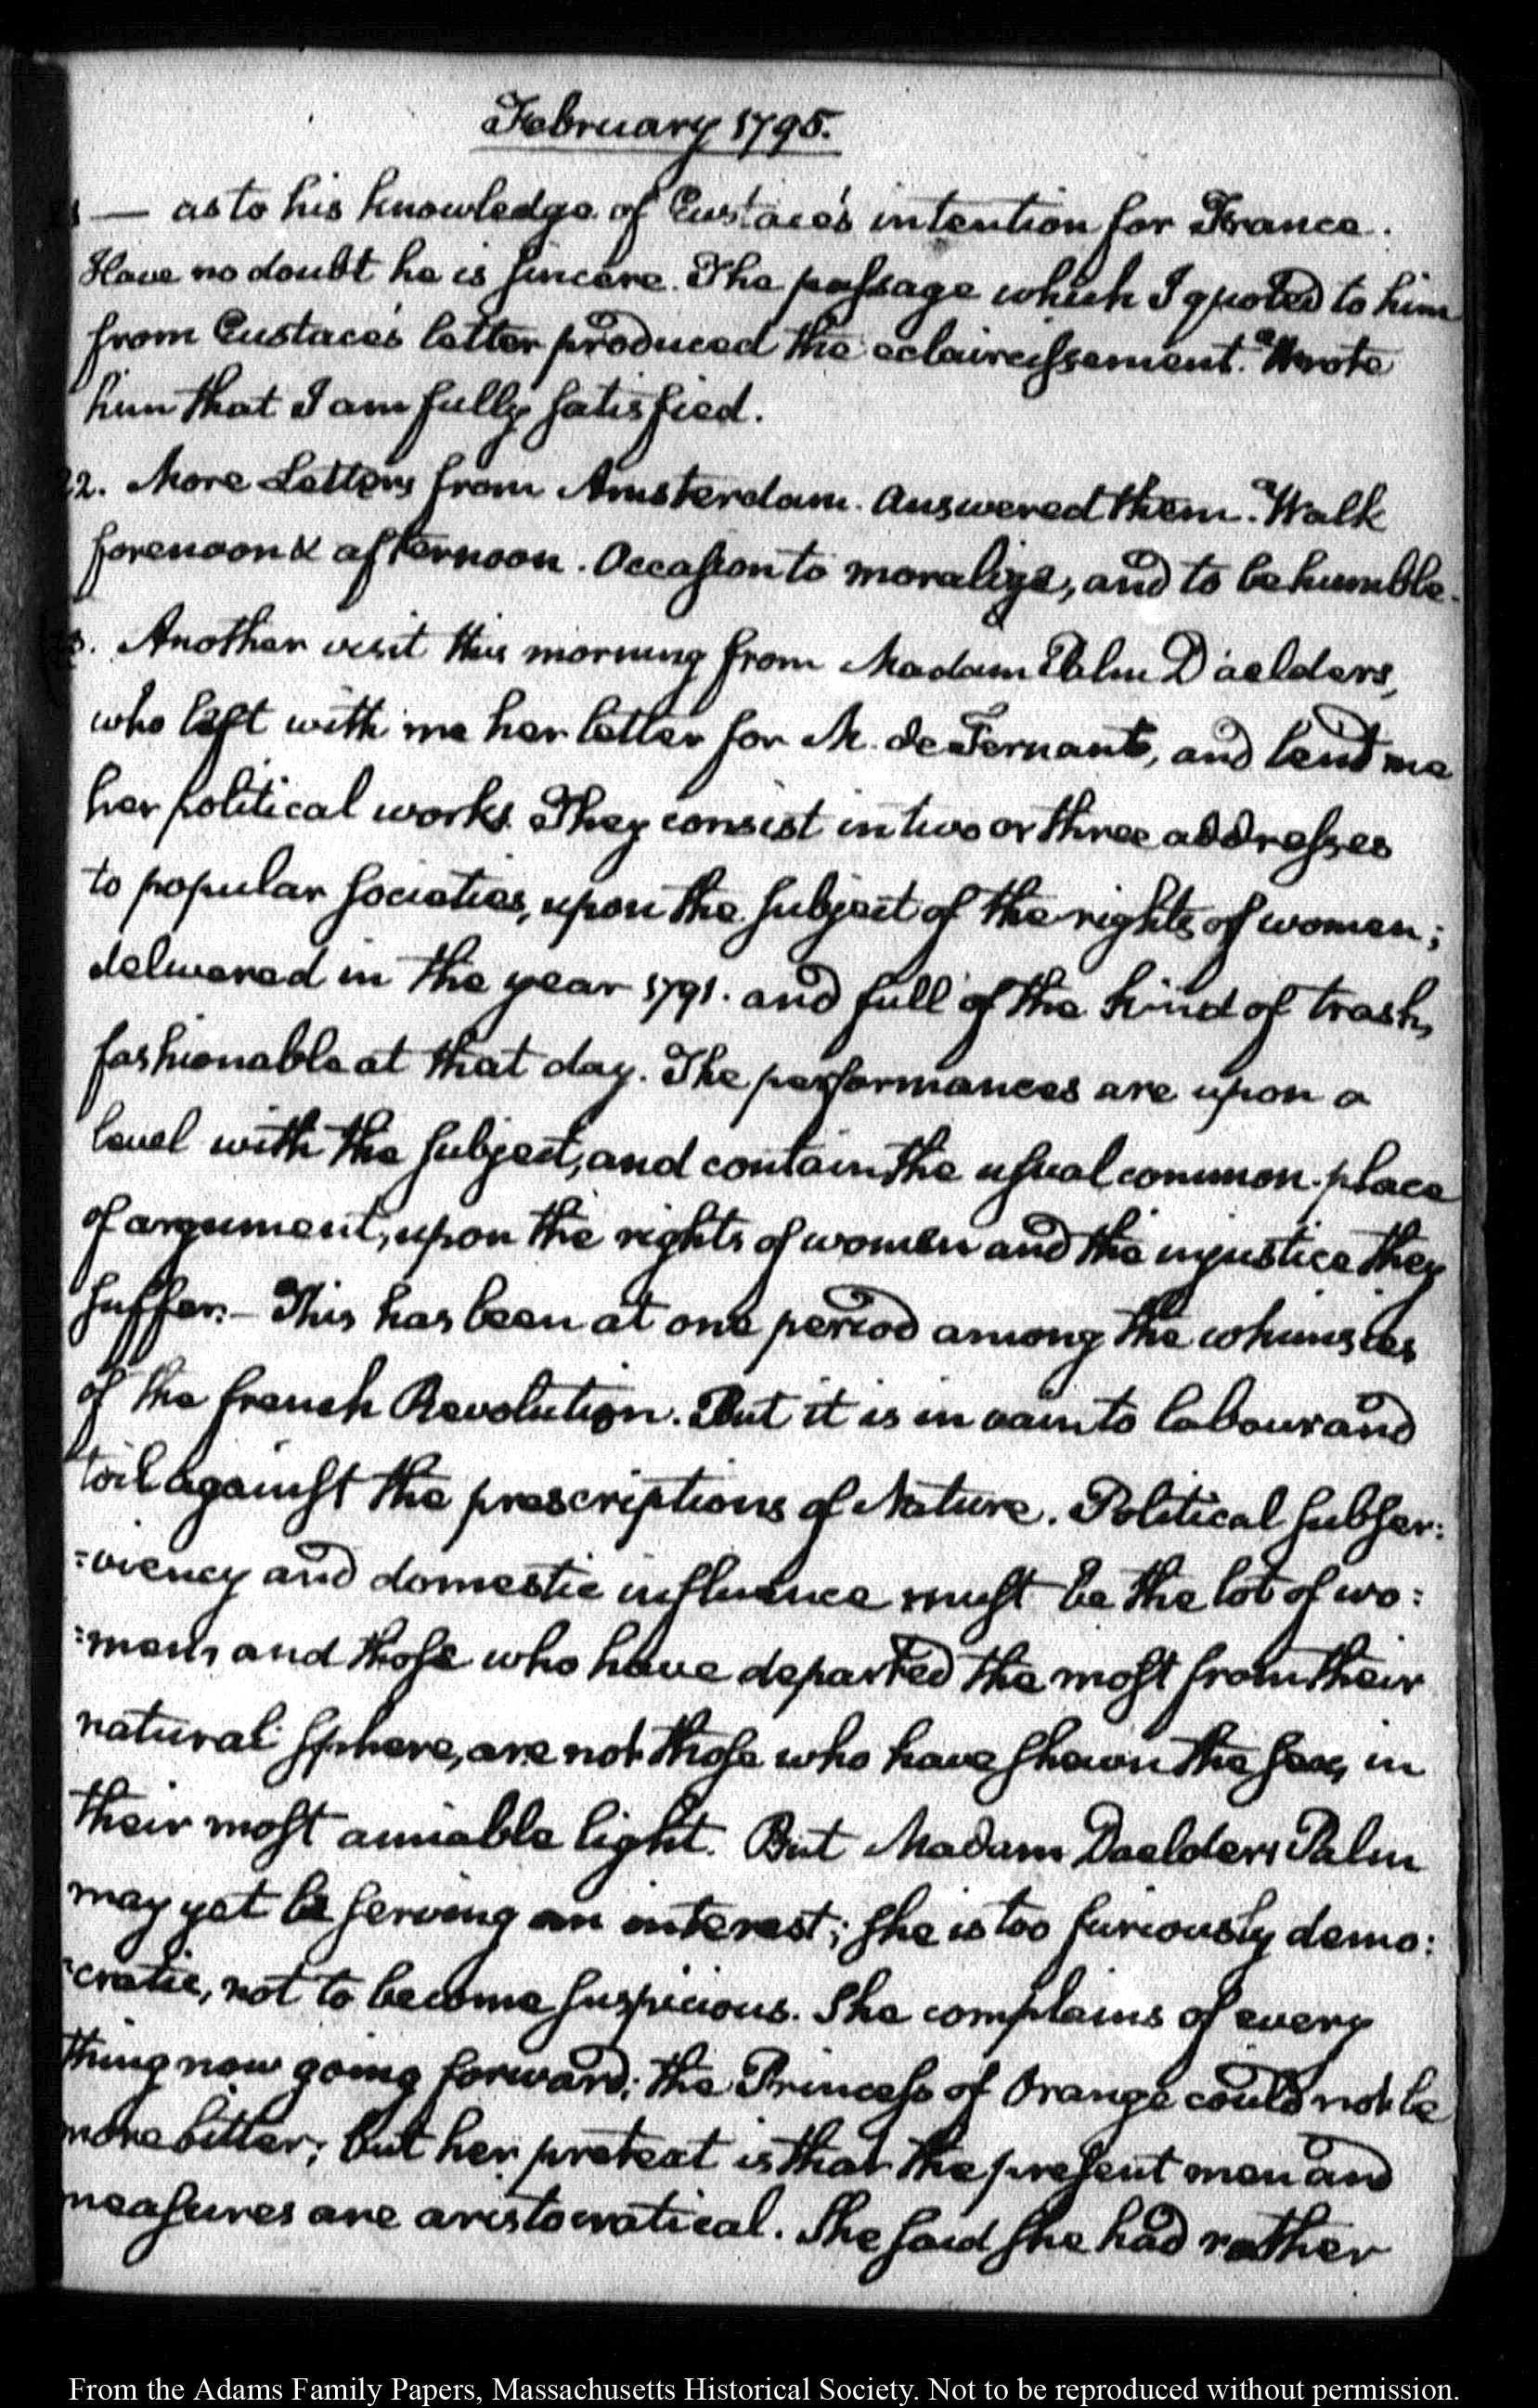 February 1795.
— as to his knowledge of Eustace's intention for France.
Have no doubt he is sincere. The passage which I quoted to him
from Eustace's letter produced the eclaircissement. Wrote
him that I am fully satisfied.
22. More Letters from Amsterdam. Answered them. Walk
forenoon & afternoon. Occasion to moralize, and to be humble.
Another visit this morning from Madam Palm D'aelders,
who left with me her letter for M. de Ternant, and lent me
her political works. They consist in two or three addresses
to popular societies, upon the subject of the rights of women;
delivered in the year 1791. and full of the kind of trash,
fashionable at that day. The performances are upon a
level with the subject, and contain the usual common-place
of argument, upon the rights of women and the injustice they
suffer.— This has been at one period among the whimsies
of the french Revolution. But it is in vain to labour and
toil against the prescriptions of Nature. Political subser:
:viency and domestic influence must be the lot of wo:
:men, and those who have departed the most from their
natural sphere, are not those who have shewn the sex, in
their most amiable light. But Madam Daelders Palm
may yet be serving an interest; she is too furiously demo:
:cratic, not to become suspicious. She complains of every
thing now going forward; the Princess of Orange could not be
more bitter; but her pretext is that the present men and
measures are aristocratical. She said she had rather
From the Adams Family Papers, Massachusetts Historical Society. Not to be reproduced without permission.